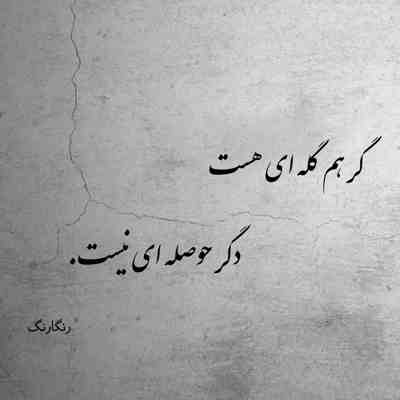 گر هم گله ای هست
دگر حوصله ای نیست.
رنگارنگ